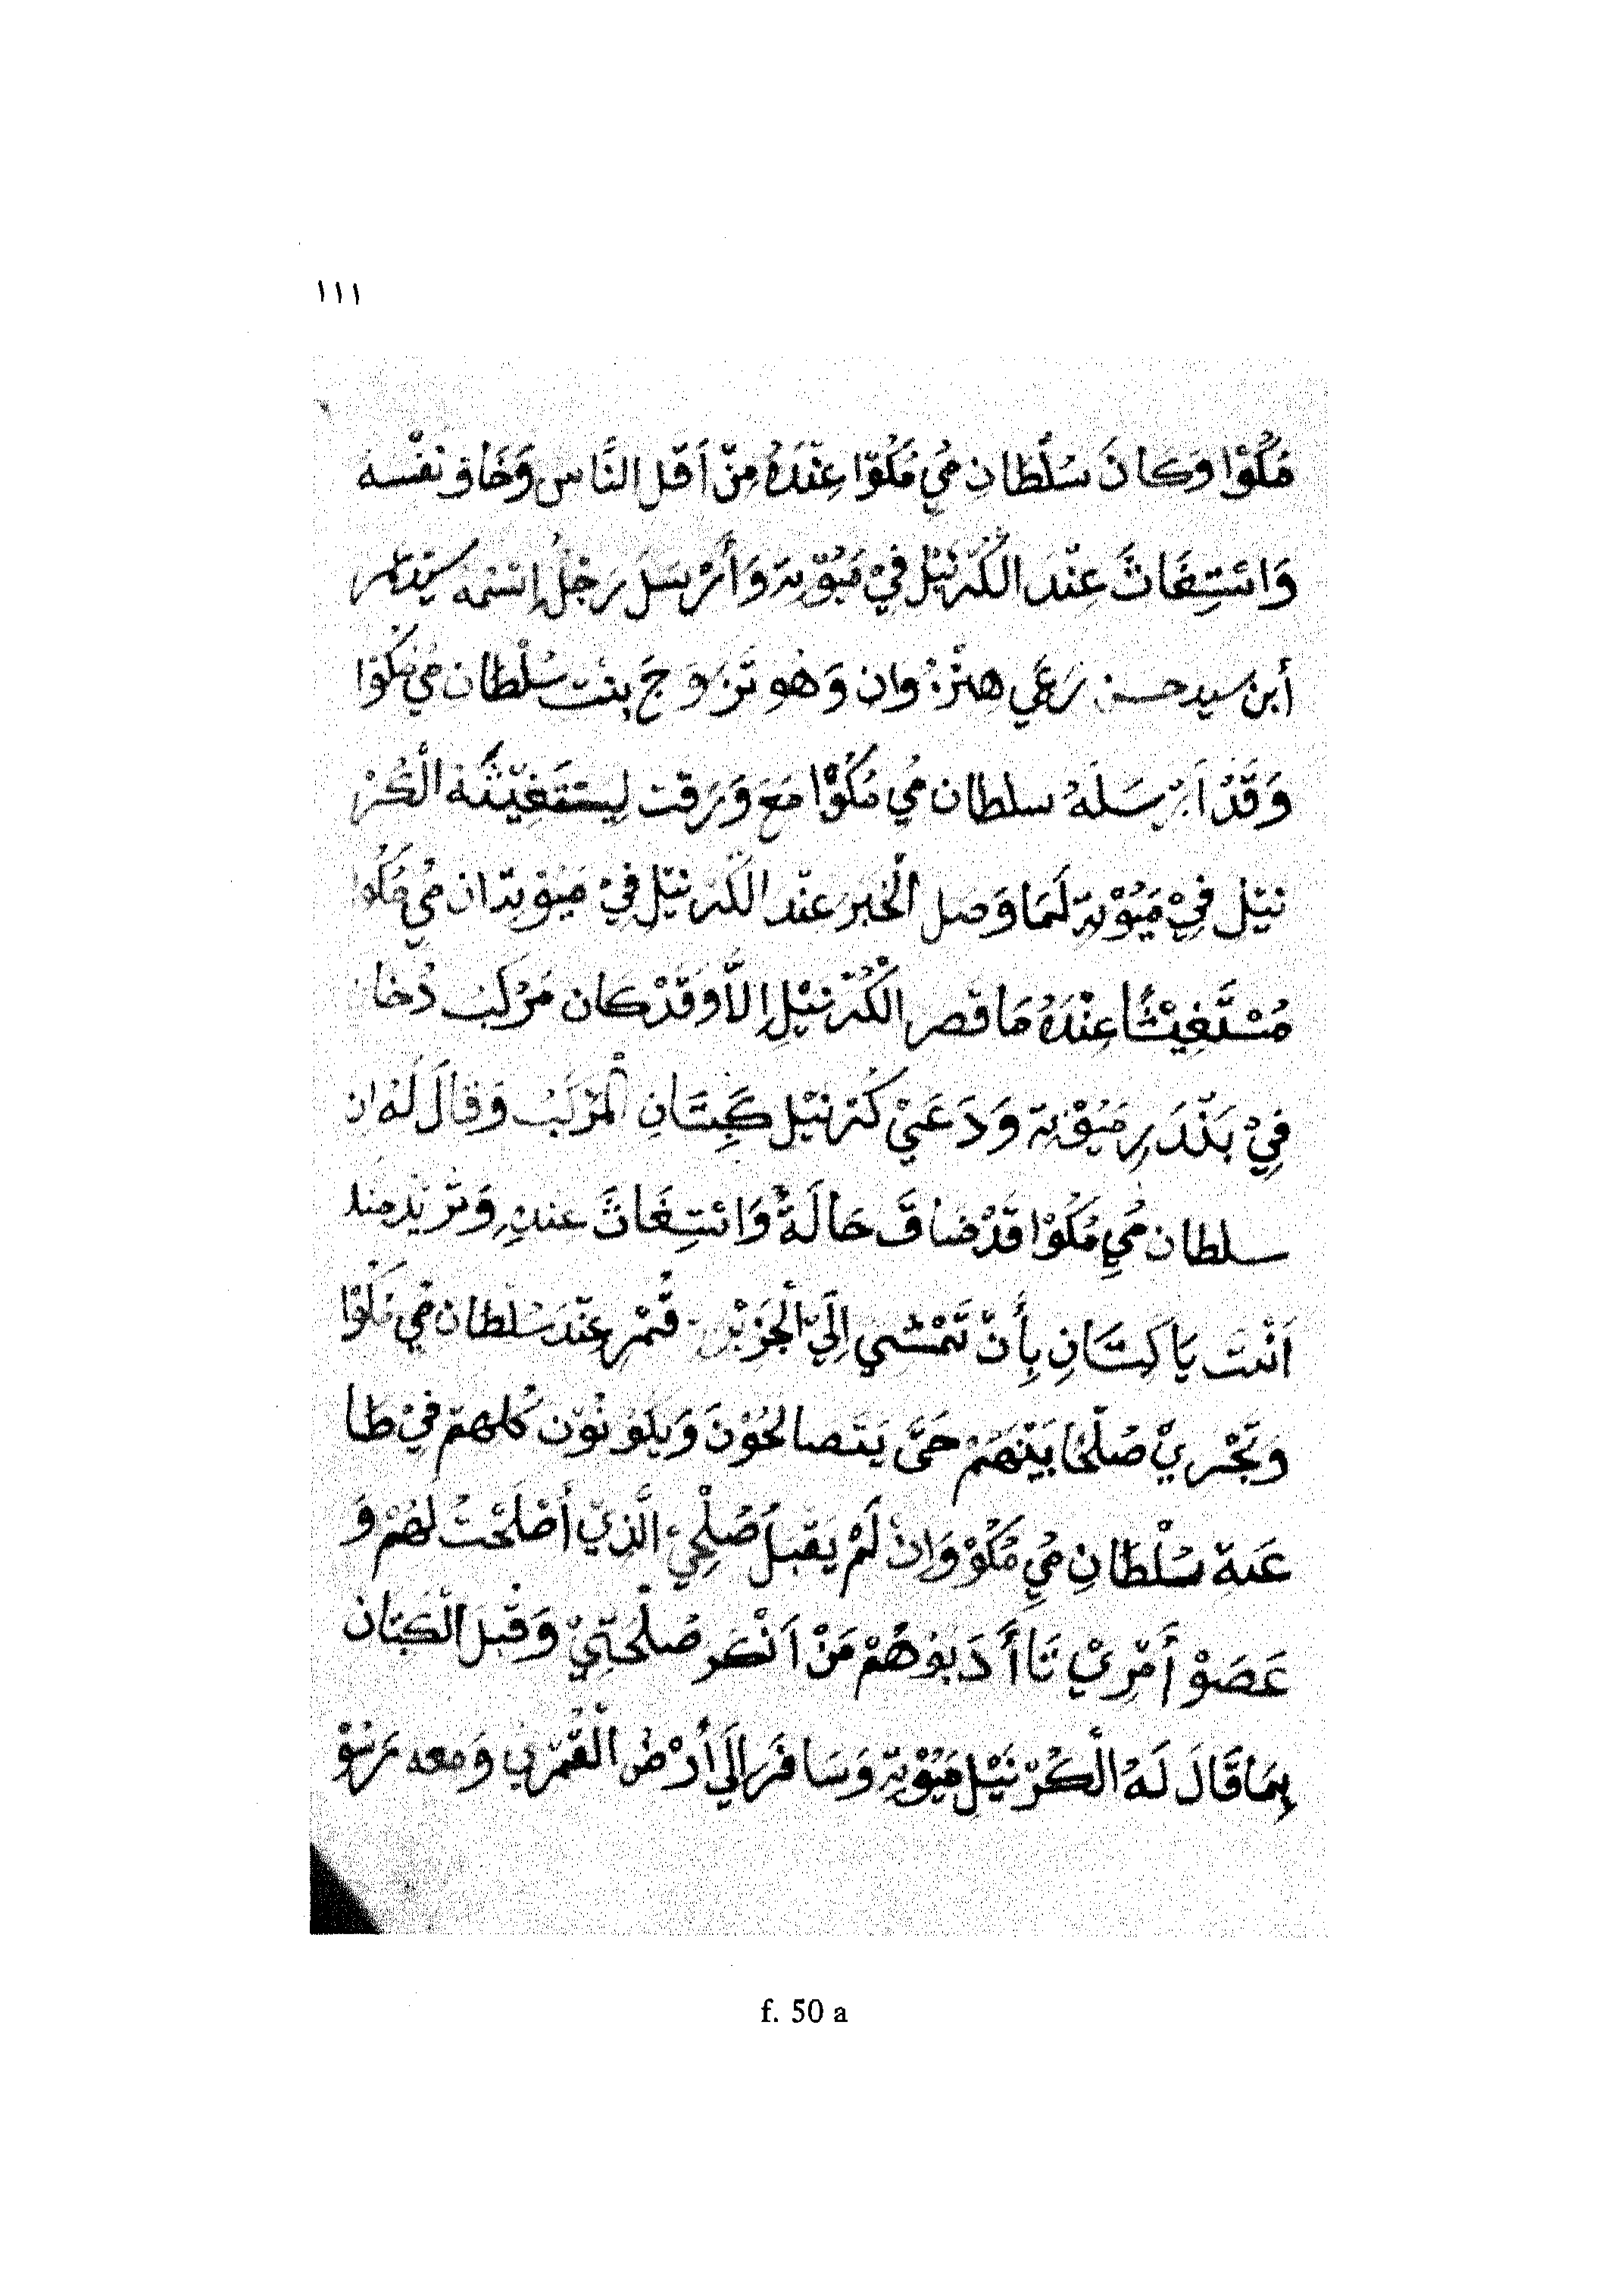 ١١١
مُكُوْا وَكَانَ سُلْطَانِ مُيِ مُكُوْا عِنْدَهُ مِنْ أَقَلِ النَّاسِ وَخَافَ نَفْسه
وَائْتِغَاثَ عِنْدَ الكُرْنَيْل فِيْ مَيُوْتِهَ وَأَرْسَلَ رَجُلُ إِسْمُهُ سَيِّد عمر
أبن سيد حسن رَعِي هِنْزُوان وَهُو تَزَوَجَ بِنْت سُلْطَان مُيِ مُكُوْا
وَقَدْ اَرْسَلَهُ سلطان مُيِ مُكُوْا مَعَ وَرَقت لِيسْتَغِيْثُهُ الْكُرْ
نَيْل فِيْ مَيُوْتِهَ لَمَا وَصل الْخَبر عنْد الكُرْنَيْل فِيْ مَيُوْتِهَ ان مُيِ مُكُوا
مُسْتَغِيْثًا عِنْدَهُ مَا قصر الْكُرْنَيْلِ اِلَّا وَقَدْ كان مَرْكَبُ دُخا
فِيْ بَنْدَرِ مَيُوْتِهَ وَدَعَيْ كُرْنَيْل كَبِتَانِ الْمَرْكَبُ وَقَالَ لَهُ ان
سلطان مُيِ مُكُوْا قَدْ ضَاقَ حَالَةُ وَائْتِغَاثَ عندهِ وَنُرِيْد منك
اَنْتَ يَا كَبِتَانِ بِأَنْ تَمْشي اِلَيْ الْجَزِيْرَ فَمْرِ عِنْدَ سُلْطَان مُيِ مُكُوْا
وَتَجْرِيْ صُلْحًا بَيْنَهُمْ حَتَّى يَتَصالحُوْنَ وَيَكُوْنُوْن كُلهمْ فِيْ طَا
عَة سُلْطَانِ مُيِ مُكُوْ وَاِنْ لَمْ يَقْبلَ صُلْحِيْ الَّذِيْ أَصْلَحْتُ لَهُمْ وَ
عَصَوْ أَمْرِيْ تَا أَدَبُوهُمْ مَنْ اَنْكَر صُلْحَتِيْ وَقَبلَ الْكَبِتَان
بِمَا قَالَ لَهُ الْكُرْنَيْل مَيُوْتِهَ وَسَافَرَ اِلَي أَرْضِ الْقُمْرِيِ وَمعه
f. 50 a